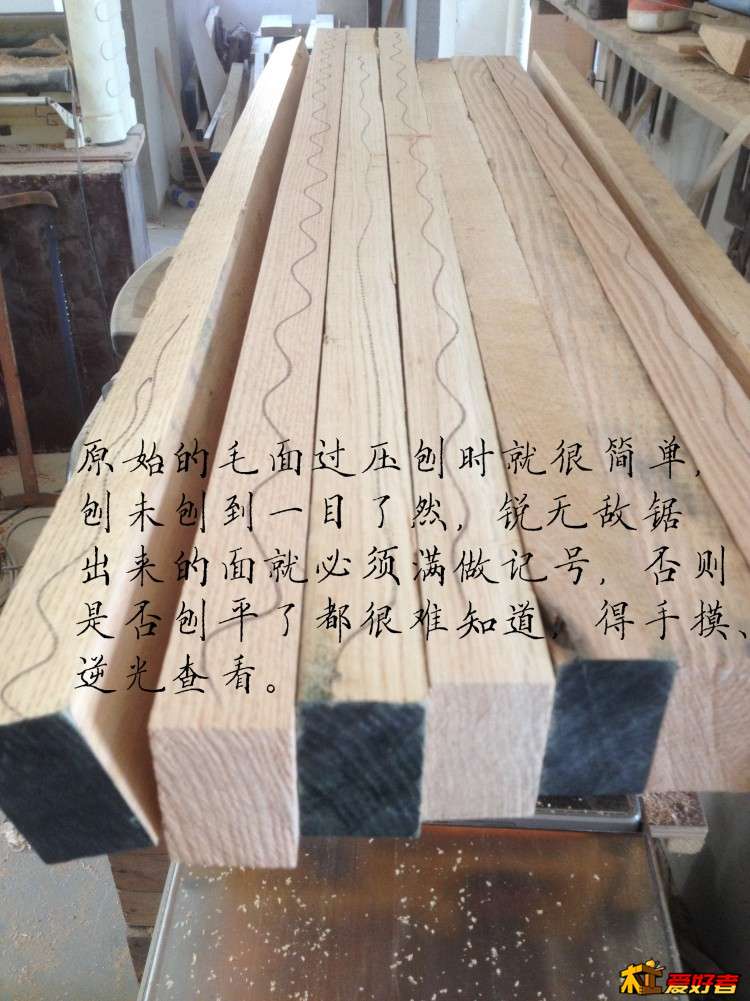 原始的毛面过压刨时就很简单，
刨未刨到一目了然，锐无敌锯
出来的面就必须满做记号，否则
是否刨平了都很难知道，得手摸、
逆光查看。
木工爱好者